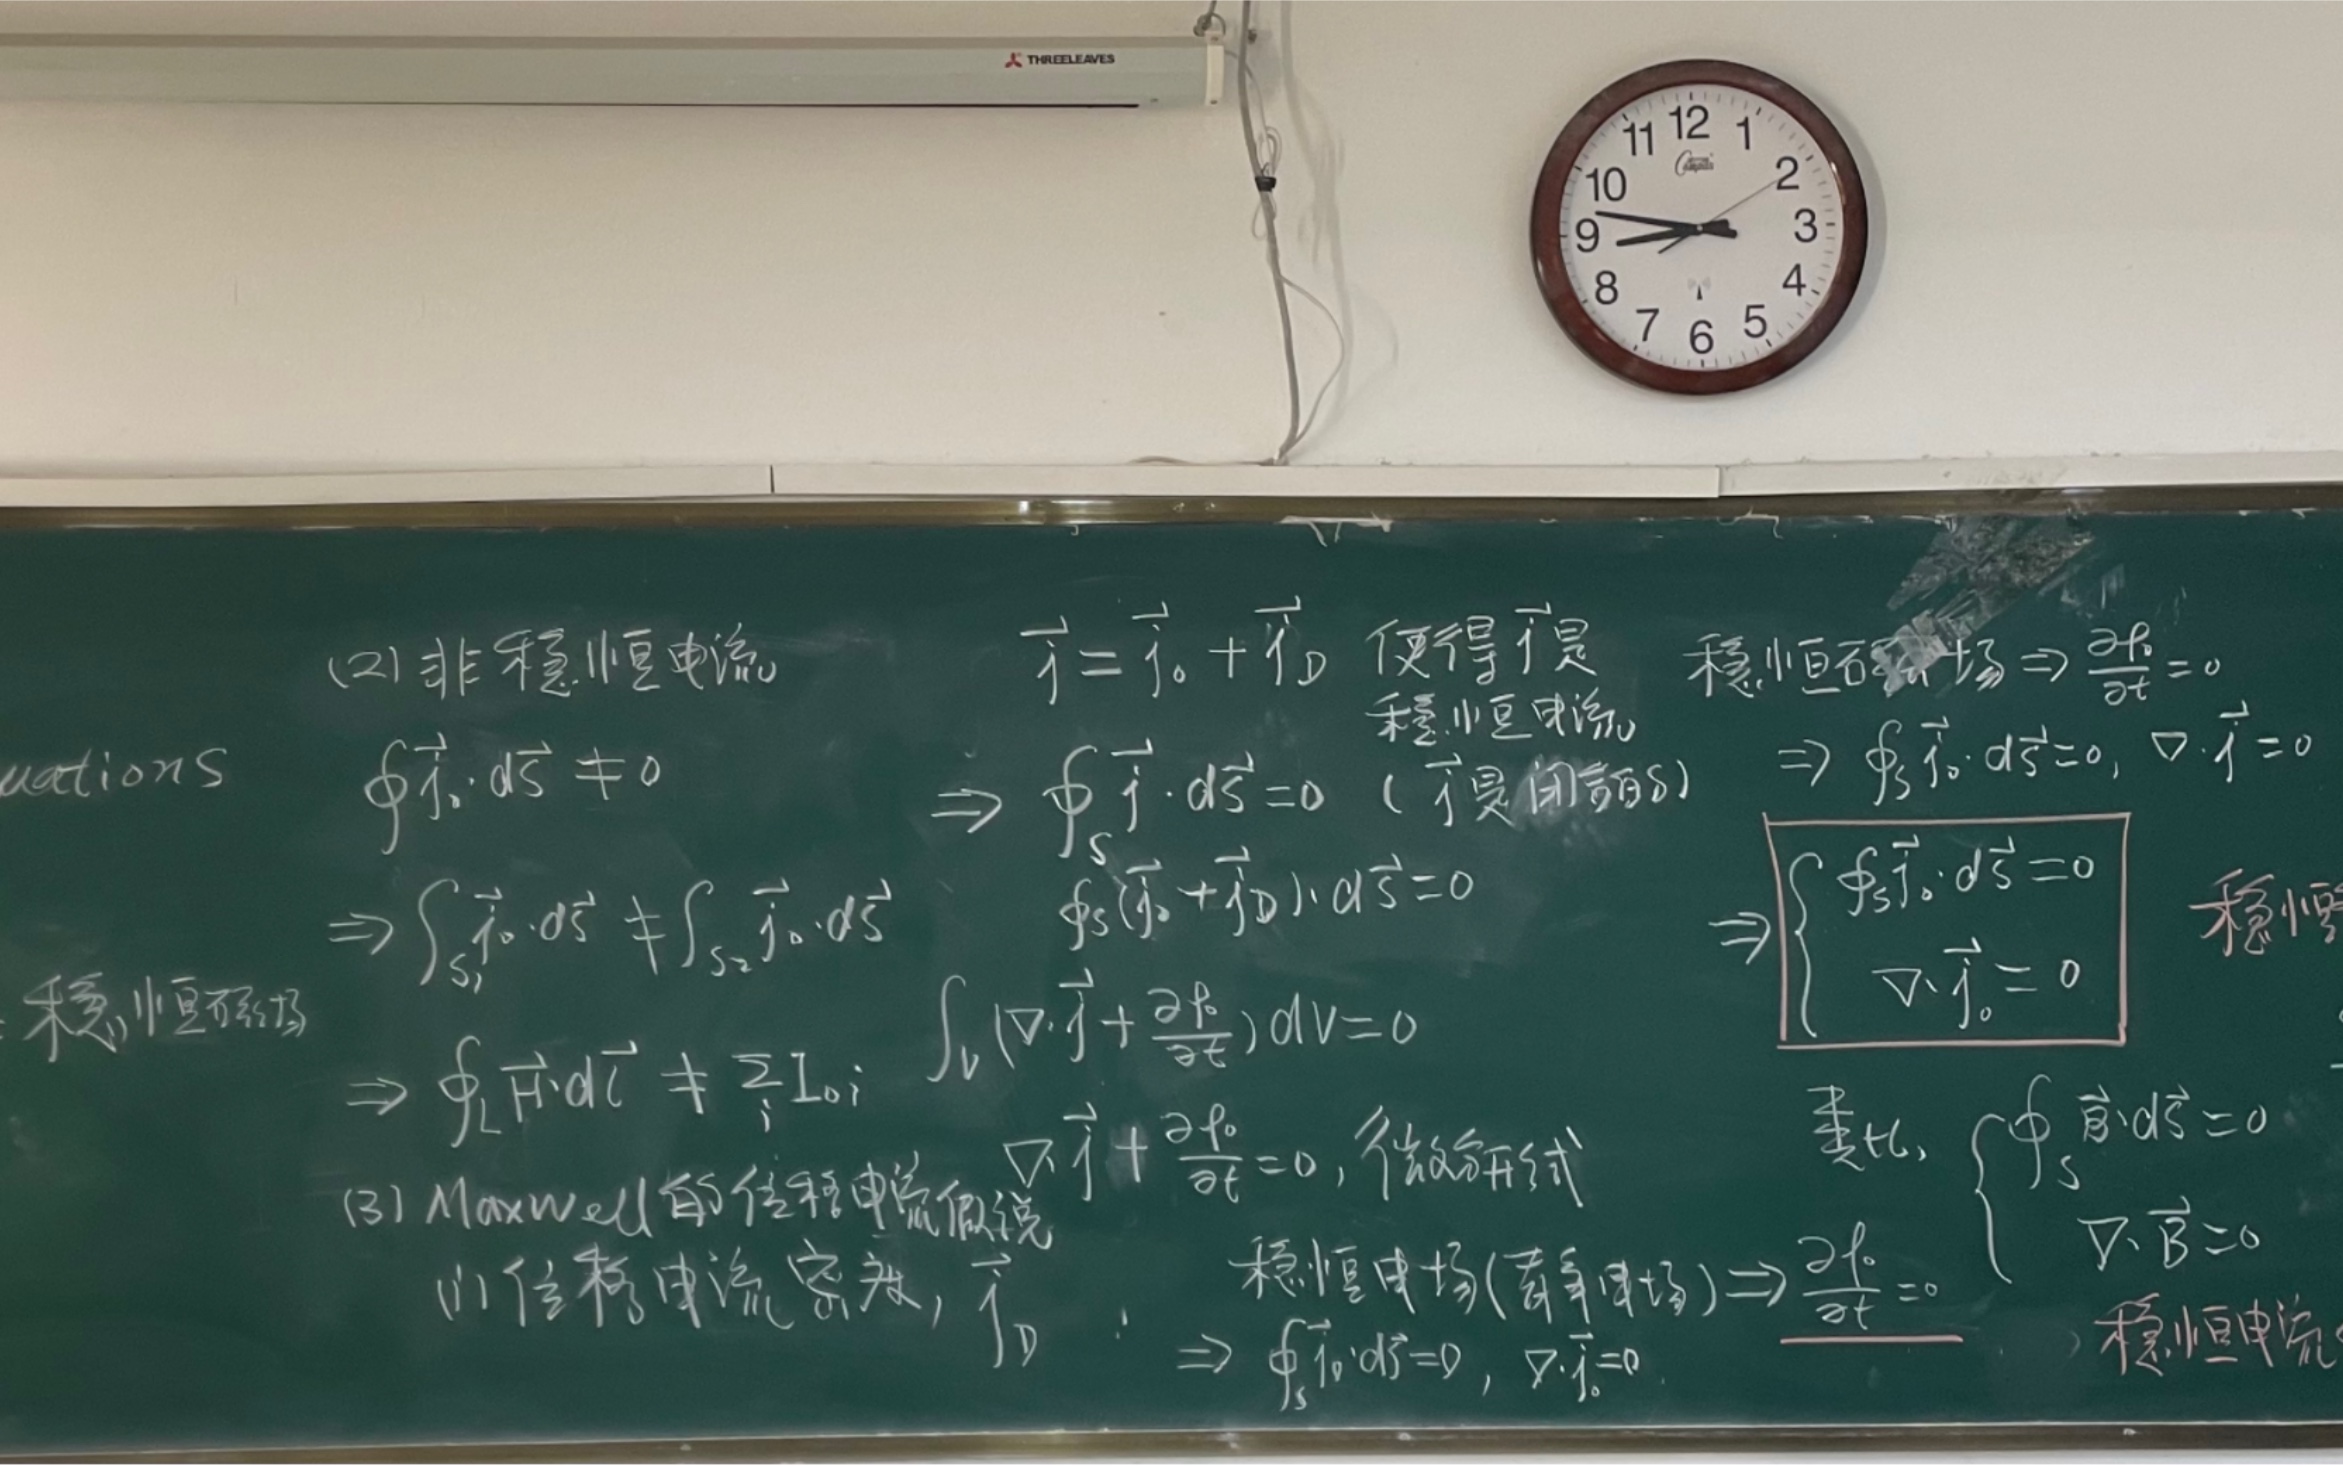 THREELEAVES
12
1
2
3
4
5
6
7
8
9
10
11
uations
稳恒磁场
(2) 非稳恒电流
∮j⃗₀·ds⃗ ≠ 0
⇒ ∫_S₁ j⃗₀·ds⃗ ≠ ∫_S₂ j⃗₀·ds⃗
⇒ ∮_L H⃗·dl⃗ ≠ Σ_i I₀i
(3) Maxwell的位移电流假说
(1) 位移电流密度, j⃗_D
j⃗ = j⃗₀ + j⃗_D 使得j⃗是
稳恒电流
⇒ ∮_S j⃗·ds⃗ = 0 (j⃗是闭合的)
∮_S (j⃗₀ + j⃗_D)·ds⃗ = 0
∫_V (∇·j⃗ + ∂ρ₀/∂t) dV = 0
∇·j⃗ + ∂ρ₀/∂t = 0, 微分形式
稳恒电场(静电场) ⇒ ∂ρ₀/∂t = 0
⇒ ∮_S j⃗₀·ds⃗ = 0, ∇·j⃗₀ = 0
稳恒磁场 ⇒ ∂ρ₀/∂t = 0
⇒ ∮_S j⃗₀·ds⃗ = 0, ∇·j⃗ = 0
⇒ { ∮_S j⃗₀·ds⃗ = 0
∇·j⃗₀ = 0
稳恒
类比, { ∮_S B⃗·ds⃗ = 0
∇·B⃗ = 0
稳恒电流